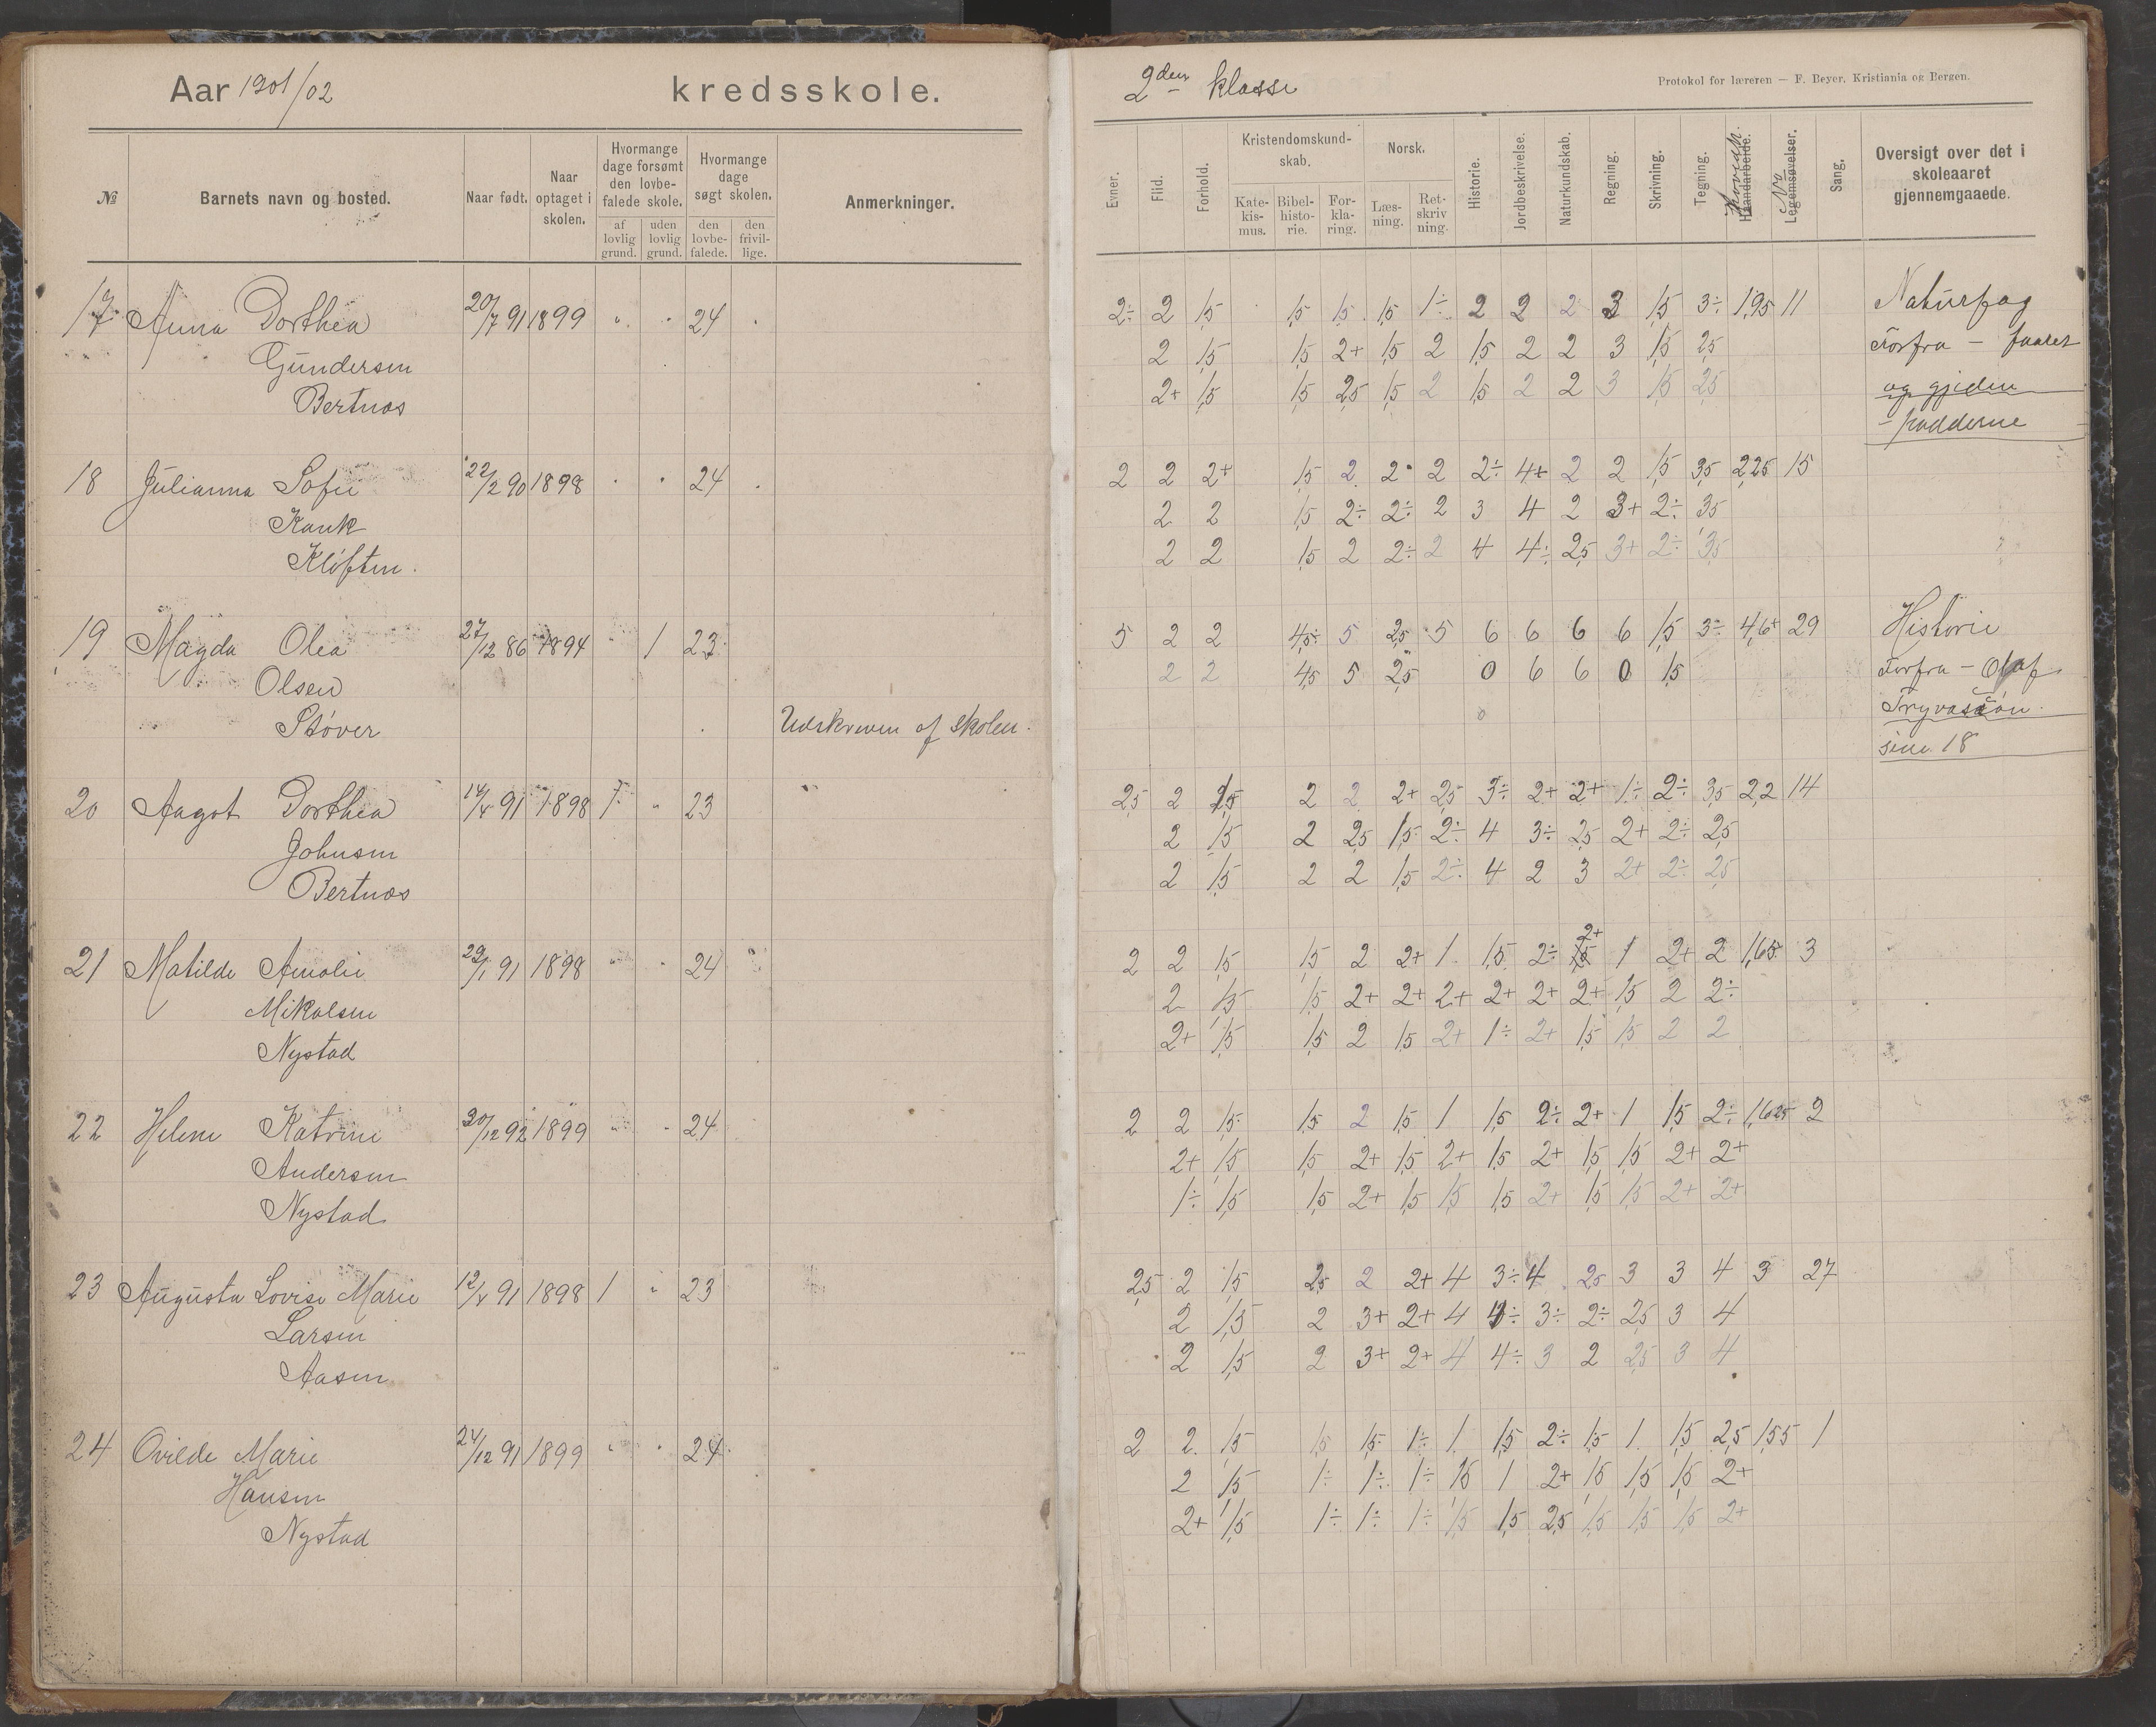 Aar 1901/02 kredsskole.
2den klasse
Protokol for læreren — F. Beyer, Kristiania og Bergen.
№ Barnets navn og bosted. Naar født. Naar optaget i skolen. Hvormange dage forsømt den lovbefalede skole. af lovlig grund. uden lovlig grund. Hvormange dage søgt skolen. den lovbefalede. den frivillige. Anmerkninger.
Evner. Flid. Forhold. Kristendomskundskab. Katekismus. Bibelhistorie. Forklaring. Norsk. Læsning. Retskrivning. Historie. Jordbeskrivelse. Naturkundskab. Regning. Skrivning. Tegning. Haandarbeide. Hovedk. Legemsøvelser. No Sang. Oversigt over det i skoleaaret gjennemgaaede.
17 Anna Dorthea 20/7 91 1899 " " 24 "
Gundersen
Bertnæs
2÷ 2 1,5 1,5 1,5 1,5 1÷ 2 2 2 3 1,5 3÷ 1,95 11 Naturfag
2 1,5 1,5 2+ 1,5 2 1,5 2 2 3 1,5 2,5 Forfra — faaret
2+ 1,5 1,5 2,5 1,5 2 1,5 2 2 3 1,5 2,5 og gjeden
— padderne
18 Julianna Sofie 22/2 90 1898 " " 24 "
Kank
Kløften.
2 2 2+ 1,5 2 2 2 2÷ 4+ 2 2 1,5 3,5 2,25 15
2 2 1,5 2÷ 2÷ 2 3 4 2 3+ 2÷ 3,5
2 2 1,5 2 2÷ 2 4 4÷ 2,5 3+ 2÷ 3,5
19 Magda Olea 27/12 86 1894 " 1 23
Olsen
Støver Udskreven af skolen.
5 2 2 4,5÷ 5 2,5 5 6 6 6 6 1,5 3÷ 4,6+ 29 Historie
2 2 4,5 5 2,5 0 6 6 0 1,5 Forfra — Olaf
Trygvassøn.
sine 18
20 Aagot Dorthea 14/4 91 1898 1 " 23
Johnsen
Bertnæs
2,5 2 1,5 2 2 2+ 2,5 3÷ 2+ 2+ 1÷ 2÷ 3,5 2,2 14
2 1,5 2 2,5 1,5 2÷ 4 3÷ 2,5 2+ 2÷ 2,5
2 1,5 2 2 1,5 2÷ 4 2 3 2+ 2÷ 2,5
21 Matilde Amalie 29/1 91 1898 " " 24
Mikalsen
Nystad
2 2 1,5 1,5 2 2+ 1 1,5 2÷ 2+ 1 2+ 2 1,65 3
2 1,5 1,5 2+ 2+ 2+ 2+ 2+ 2+ 1,5 2 2÷
2+ 1,5 1,5 2 1,5 2+ 1÷ 2+ 1,5 1,5 2 2
22 Helene Katrine 20/12 92 1899 " " 24
Andersen
Nystad
2 2 1,5 1,5 2 1,5 1 1,5 2÷ 2+ 1 1,5 2÷ 1,625 2
2+ 1,5 1,5 2+ 1,5 2+ 1,5 2+ 1,5 1,5 2+ 2+
1÷ 1,5 1,5 2+ 1,5 1,5 1,5 2+ 1,5 1,5 2+ 2+
23 Augusta Lovise Marie 12/4 91 1898 1 " 23
Larsen
Aasen
2,5 2 1,5 2,5 2 2+ 4 3÷ 4 2,5 3 3 4 3 27
2 1,5 2 3+ 2+ 4 4÷ 3÷ 2÷ 2,5 3 4
2 1,5 2 3+ 2+ 4 4÷ 3 2 2,5 3 4
24 Ovilde Marie 24/12 91 1899 " " 24
Hansen
Nystad
2 2 1,5 1,5 1,5 1÷ 1 1,5 2÷ 1,5 1 1,5 2,5 1,55 1
2 1,5 1÷ 1÷ 1÷ 1,5 1 2+ 1,5 1,5 1,5 2+
2+ 1,5 1÷ 1÷ 1÷ 1,5 1,5 2,5 1,5 1,5 1,5 2+